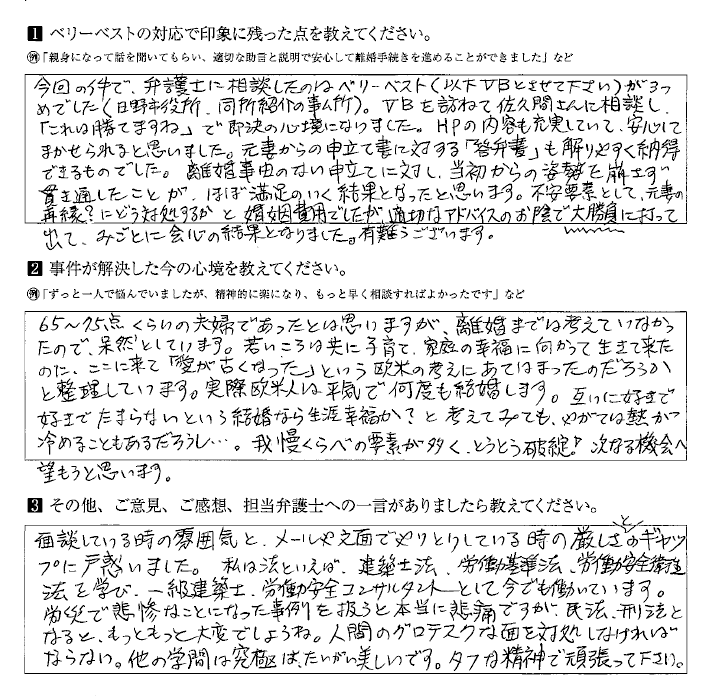 1 ベリーベストの対応で印象に残った点を教えてください。
例「親身になって話を聞いてもらい、適切な助言と説明で安心して離婚手続きを進めることができました」など
今回の件で、弁護士に相談したのはベリーベスト(以下VBとさせて下さい)が3つ
めでした(日野市役所、同所紹介の事ム所)。VBを訪ねて佐久間さんに相談し、
「これは勝てますね」で即決の心境になりました。HPの内容も充実していて、安心して
まかせられると思いました。元妻からの申立て書に対する「答弁書」も解り易すく納得
できるものでした。離婚事由のない申立てに対し、当初からの姿勢を崩さず
貫き通したことが、ほぼ満足のいく結果となったと思います。不安要素として、元妻の
再縁?にどう対処するかと婚姻費用でしたが、適切なアドバイスのお陰で大勝負に打って
出て、みごとに会心の結果となりました。有難うございます。
2 事件が解決した今の心境を教えてください。
例「ずっと一人で悩んでいましたが、精神的に楽になり、もっと早く相談すればよかったです」など
65〜75点くらいの夫婦であったとは思いますが、離婚までは考えていなかっ
たので、呆然としています。若いころは共に子育て、家庭の幸福に向かって生きて来た
のに、ここに来て「愛が古くなった」という欧米の考えにあてはまったのだろうか
と整理しています。実際欧米人は平気で何度も結婚します。互いに好きで
好きでたまらないという結婚なら生涯幸福か?と考えてみても、やがては熱が
冷めることもあるだろうし…。我慢くらべの要素が多く、とうとう破綻!次なる機会へ
望もうと思います。
3 その他、ご意見、ご感想、担当弁護士への一言がありましたら教えてください。
面談している時の雰囲気と、メールや文面でやりとりしている時の厳しさとのギャッ
プに戸惑いました。私は法といえば、建築士法、労働基準法、労働安全衛生
法を学び、一級建築士、労働安全コンサルタントとして今でも働いています。
労災で悲惨なことになった事例を扱うと本当に悲痛ですが、民法、刑法と
なると、もっともっと大変でしょうね。人間のグロテスクな面を対処しなければ
ならない。他の学問は究極は、たいがい美しいです。タフな精神で頑張って下さい。